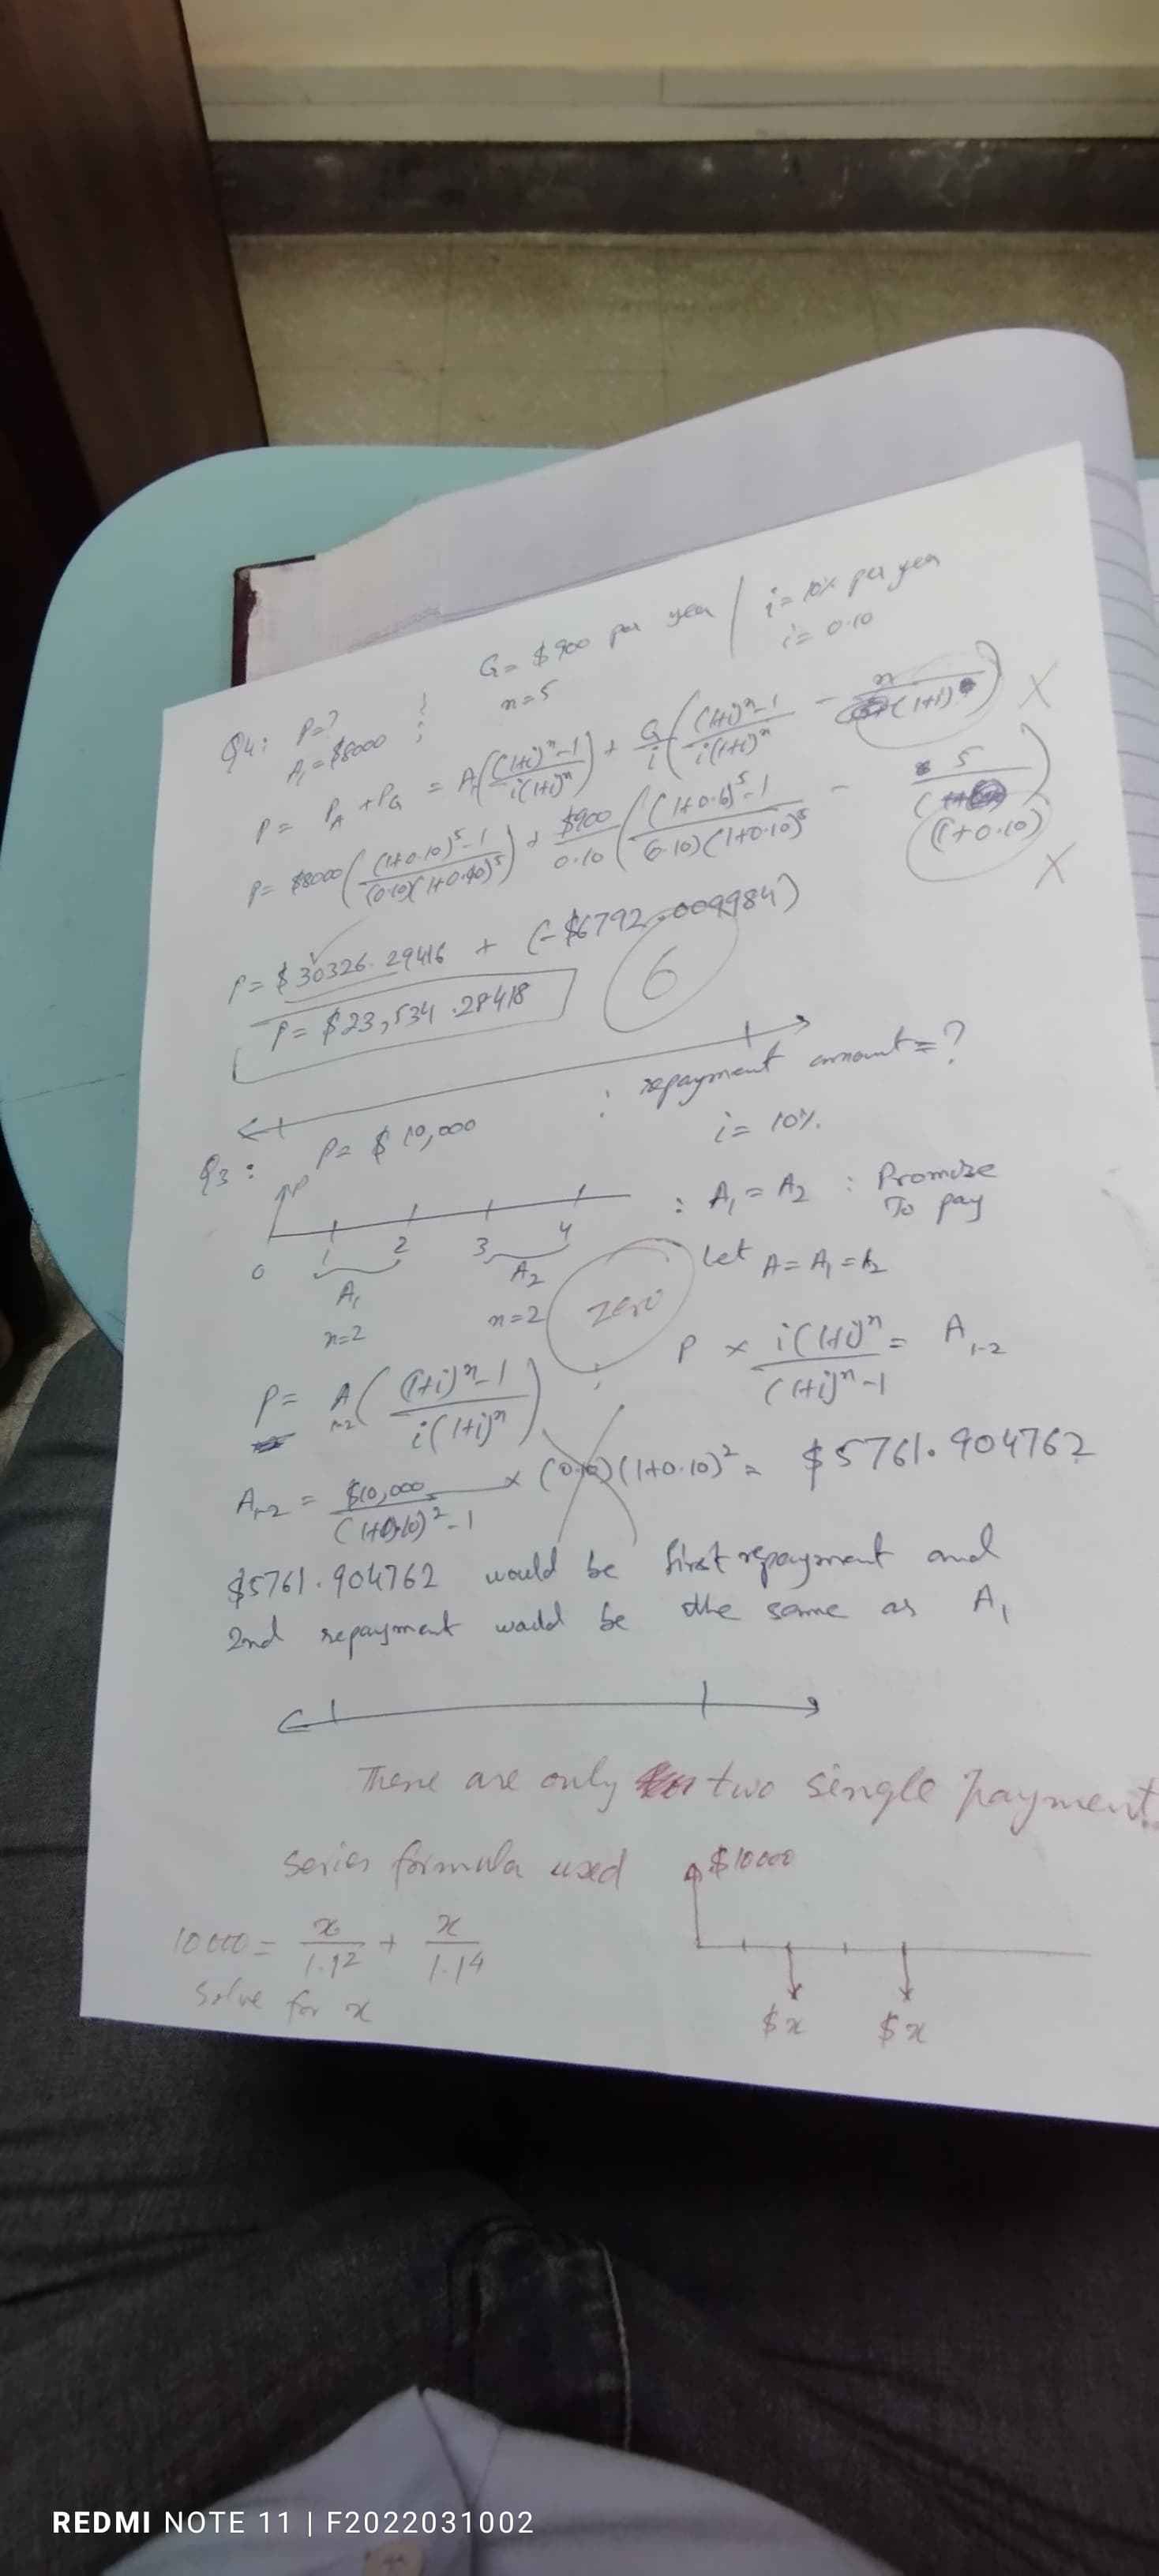 G = $900 per year | i = 10% per year
n = 5 i = 0.10
Q4: P = ?
A₁ = $8000
P = P_A + P_G = A₁((1+i)ⁿ-1 / i(1+i)ⁿ) + G/i((1+i)ⁿ-1 / i(1+i)ⁿ - n / (1+i)) X
P = $8000((1+0.10)⁵-1 / (0.10)(1+0.10)⁵) + $900/0.10((1+0.10)⁵-1 / (0.10)(1+0.10)⁵ - 5 / (1+0.10)) X
P = $30326.29416 + (-$6792.009984)
P = $23,534.28418
6
Q3: P = $10,000 : repayment amount = ?
i = 10%
0 1 2 3 4
: A₁ = A₂ : Promise
To pay
A₁ A₂
n=2 n=2
Let A = A₁ = A₂
zero
P = A₁₋₂((1+i)ⁿ-1 / i(1+i)ⁿ) ; P × i(1+i)ⁿ / (1+i)ⁿ-1 = A₁₋₂
A₁₋₂ = $10,000 / (1+0.10)²-1 × (0.10)(1+0.10)² = $5761.904762
$5761.904762 would be first repayment and
2nd repayment would be the same as A₁
There are only two single payment..
series formula used
$10000
10000 = x/1.1² + x/1.1⁴
solve for x
$x $x
REDMI NOTE 11 | F2022031002